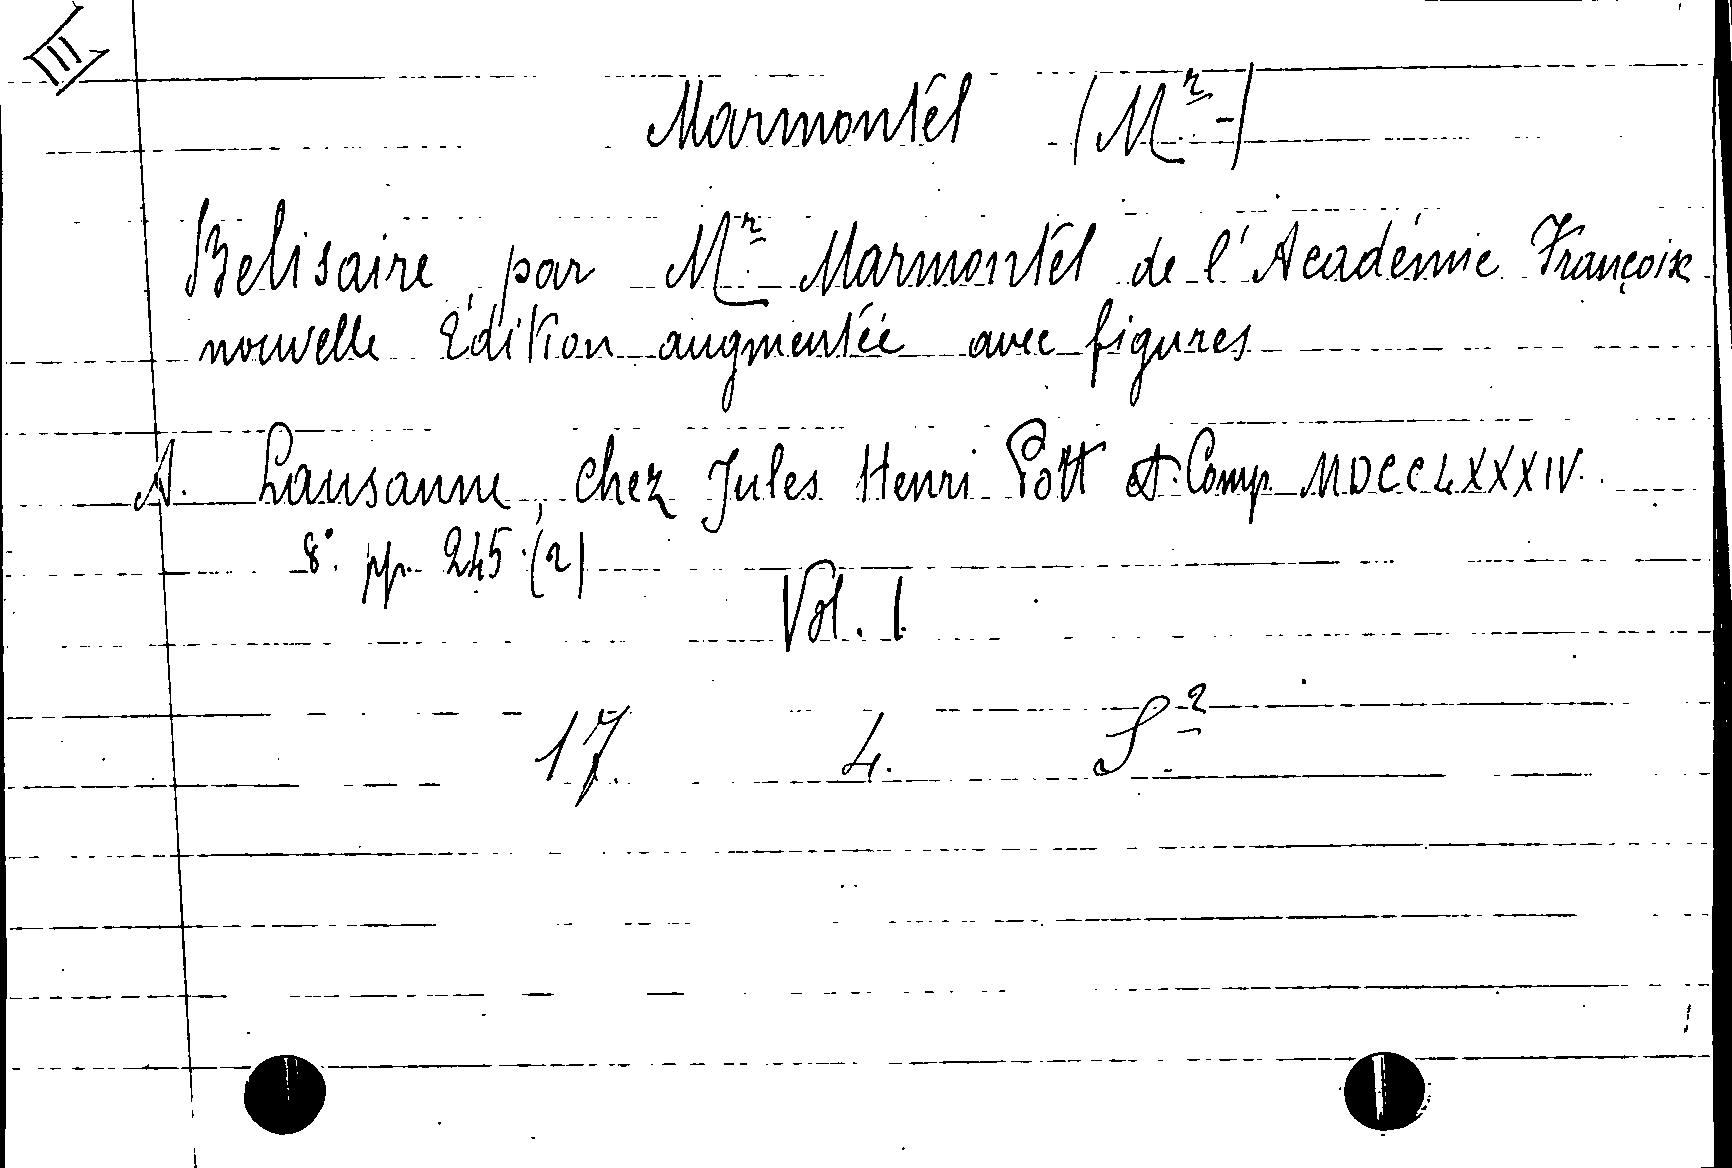 III
Marmontel (Mr.-)
Belisaire, par Mr. Marmontel de l'Académie Françoise
nouvelle Édition augmentée avec figures
A. Lausanne, chez Jules Henri Pott et Comp. MDCCLXXXIV.
8°. pp. 245.(2)
Vol. I.
17. 4. S.2